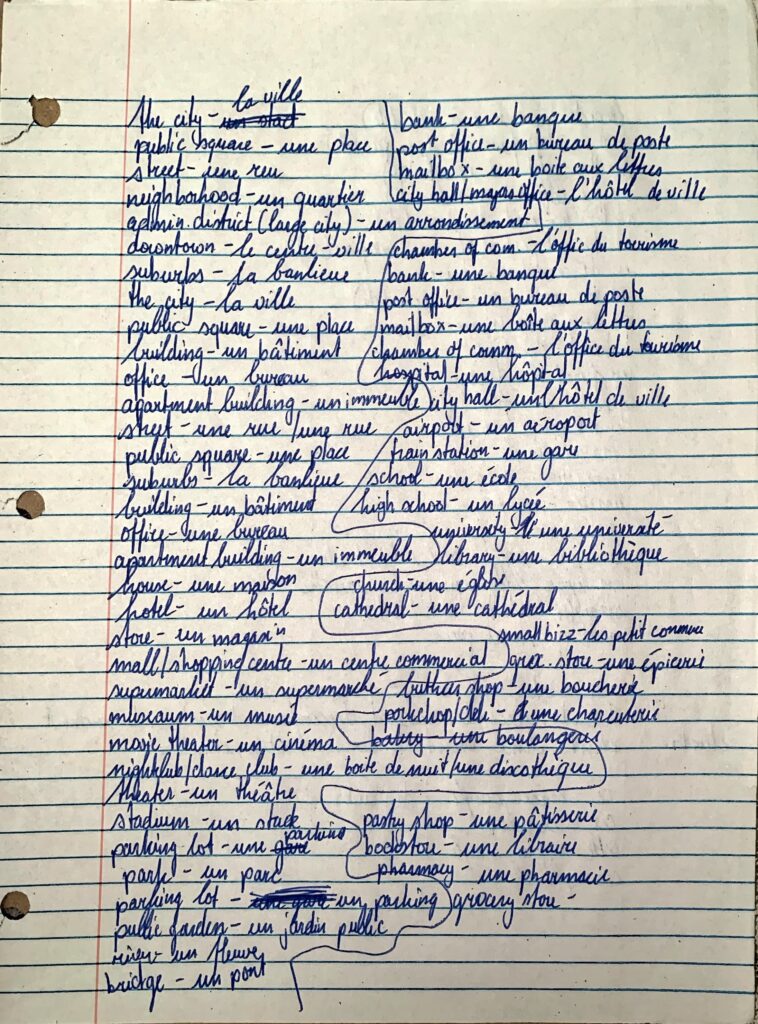 the city - la ville
public square - une place
street - une reu
neighborhood - un quartier
admin. district (large city) - un arrondissement
downtown - le centre-ville
suburbs - la banlieue
the city - la ville
public square - une place
building - un bâtiment
office - un bureau
apartment building - un immeuble
street - une rue / une rue
public square - une place
suburbs - la banlique
building - un bâtiment
office - une bureau
apartment building - un immeuble
house - une maison
hotel - un hôtel
store - un magasin
mall/shopping centre - un centre commercial
supermarket - un supermarché
museaum - un musée
movie theater - un cinéma
nightklub/dance club - une boite de nuit/une discothèque
theater - un théâtre
stadium - un stade
parking lot - une parking
park - un parc
parking lot - un parking
public garden - un jardin public
river - un fleuve
bridge - un pont
bank - une banque
post office - un bureau de poste
mailbox - une boite aux lettres
city hall/mayors office - l'hôtel de ville
chamber of com. - l'offic du tourisme
bank - une banque
post office - un bureau de poste
mailbox - une boîte aux lettres
chamber of comm. - l'office du tourisme
hospital - une hôptal
city hall - un l'hôtel de ville
airport - un aéroport
train station - une gare
school - une école
high school - un lycée
university - une université
library - une bibliothèque
church - une église
cathedral - une cathédral
small bizz - les petit commerce
groc. store - une épicerie
buther shop - une boucherie
porkchop/deli - une charcuterie
bakery - une boulangerie
pastry shop - une pâtisserie
bookstore - une libraire
pharmacy - une pharmacie
grocery store -